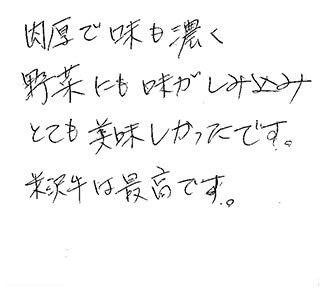 肉厚で味も濃く
野菜にも味がしみこみ
とても美味しかったです。
米沢牛は最高です。